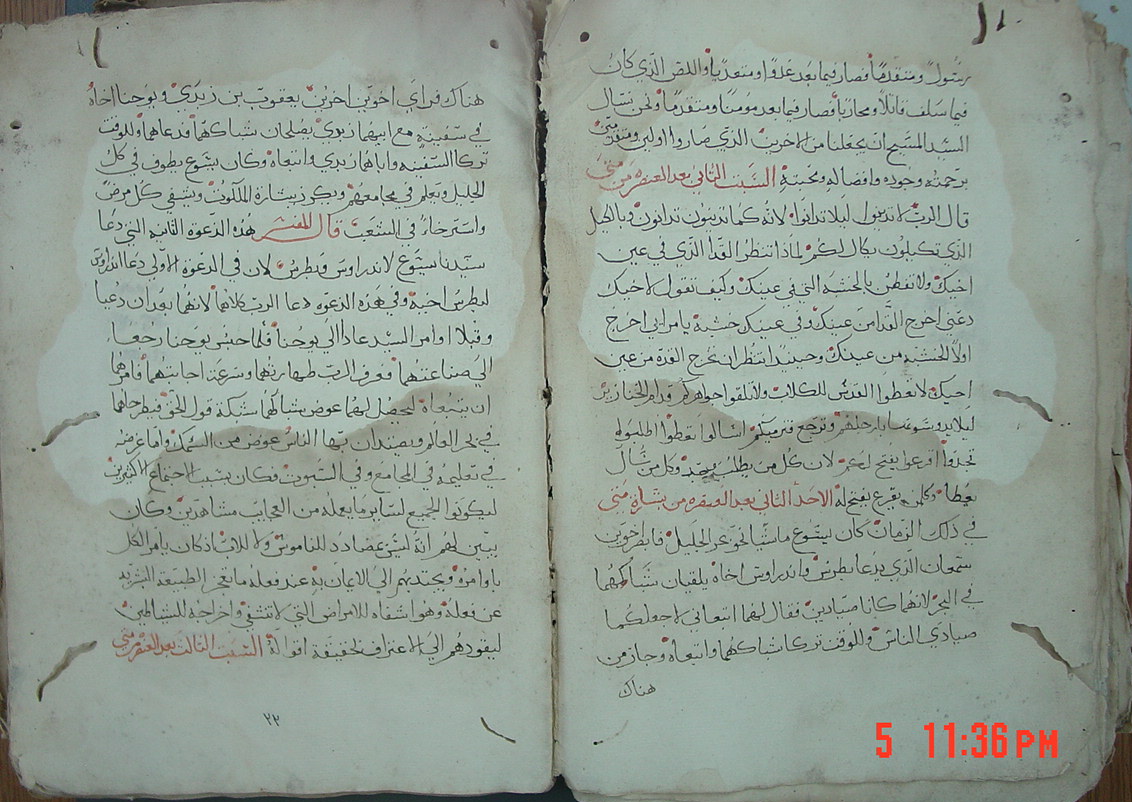 رسولاً ومتقدماً فصار فيما بعد عدواً ومتعدياً واللص الذي كان
فيما سلف قاتلاً ومحارباً فصار فيما بعد مومناً ومتقدماً ونحن نسال
السيد المسيح ان يجعلنا من الاخرين الذي صاروا اولين ومتقدمين
برحمته وجوده وافضاله ومحبته السبت الثاني بعد العنصره من متى
قال الرب لا تدينوا ليلا تدانوا لانه كما تدينون تدانون وبالكيل
الذي تكيلون يكال لكم لماذا تنظر القذا الذي في عين
اخيك ولا تفطن بالخشبه التي في عينك وكيف تقول لاخيك
دعني اخرج القذا من عينك وفي عينك خشبة يا مرايي اخرج
اولاً الخشبه من عينك وحينيذ انتظر ان تخرج القذه من عين
اخيك لا تعطوا القدس للكلاب ولا تلقوا جواهركم قدام الخنازير
ليلا يدوسوها بارجلهم وترجع فتزمنكم اسالوا تعطوا اطلبوا
تجدوا اقرعوا يفتح لكم لان كل من يطلب يجد وكل من سال
يعطا وكل من يقرع يفتح له الاحد الثاني بعد العنصره من بشارة متى
في ذلك الزمان كان يسوع ماشياً نحو بحر الجليل فابطر اخوين
سمعان الذي يدعا بطرس واندراوس اخاه يلقيان شباكهما
في البحر لانهما كانا صيادين فقال لهما اتبعاني لاجعلكما
صيادي الناس وللوقت تركا شباكهما واتبعاه وجاز من
هناك
هناك فراي اخوين اخرين يعقوب بن زبدي ويوحنا اخاه
في سفينة مع ابيهما زبدي يصلحان شباكهما فدعاهما وللوقت
تركا السفينه واباهما زبدي واتبعاه وكان يسوع يطوف في كل
الجليل ويعلم في مجامعهم ويكرز ببشارة الملكوت ويشفي كل مرض
واسترخاء في الشعب قال المفسر هذه الدعوة الثانيه التي دعا
سيدنا يسوع لاندراوس وبطرس لان في الدعوة الاولى دعا اندراوس
لبطرس اخيه وفي هذه الدعوه دعا الرب كلاهما لانهما بعد ان دعيا
وقبلا اوامر السيد عادا الي يوحنا فلما حبس يوحنا رجعا
الي صناعتهما فعرف الرب طهارتهما وسرعة اجابتهما فامرهما
ان يتبعاه ليجعل لهما عوض شباكهما شبكة قول الحق فيطرحاها
في بحر العالم ويصيدان بها الناس عوض من السمك واما غرضه
في تعليمه في المجامع وفي السبوت فكان بسبب اجتماع الاكثرين
ليكونوا الجميع لساير ما يعمله من العجايب مشاهدين وكان
يبين لهم انه ليس مضادد للناموس ولا للاب اذ كان يامر الكل
باوامره ويجتذبهم الي الايمان به عند فعله ما تعجز الطبيعه البشريه
عن فعله وهو اشفاه للامراض التي لا تشفي واخراجه للشياطين
ليقودهم الي الاعتراف بحقيقة اقواله السبت الثالث بعد العنصره متى
٢٢
5 11:36 PM